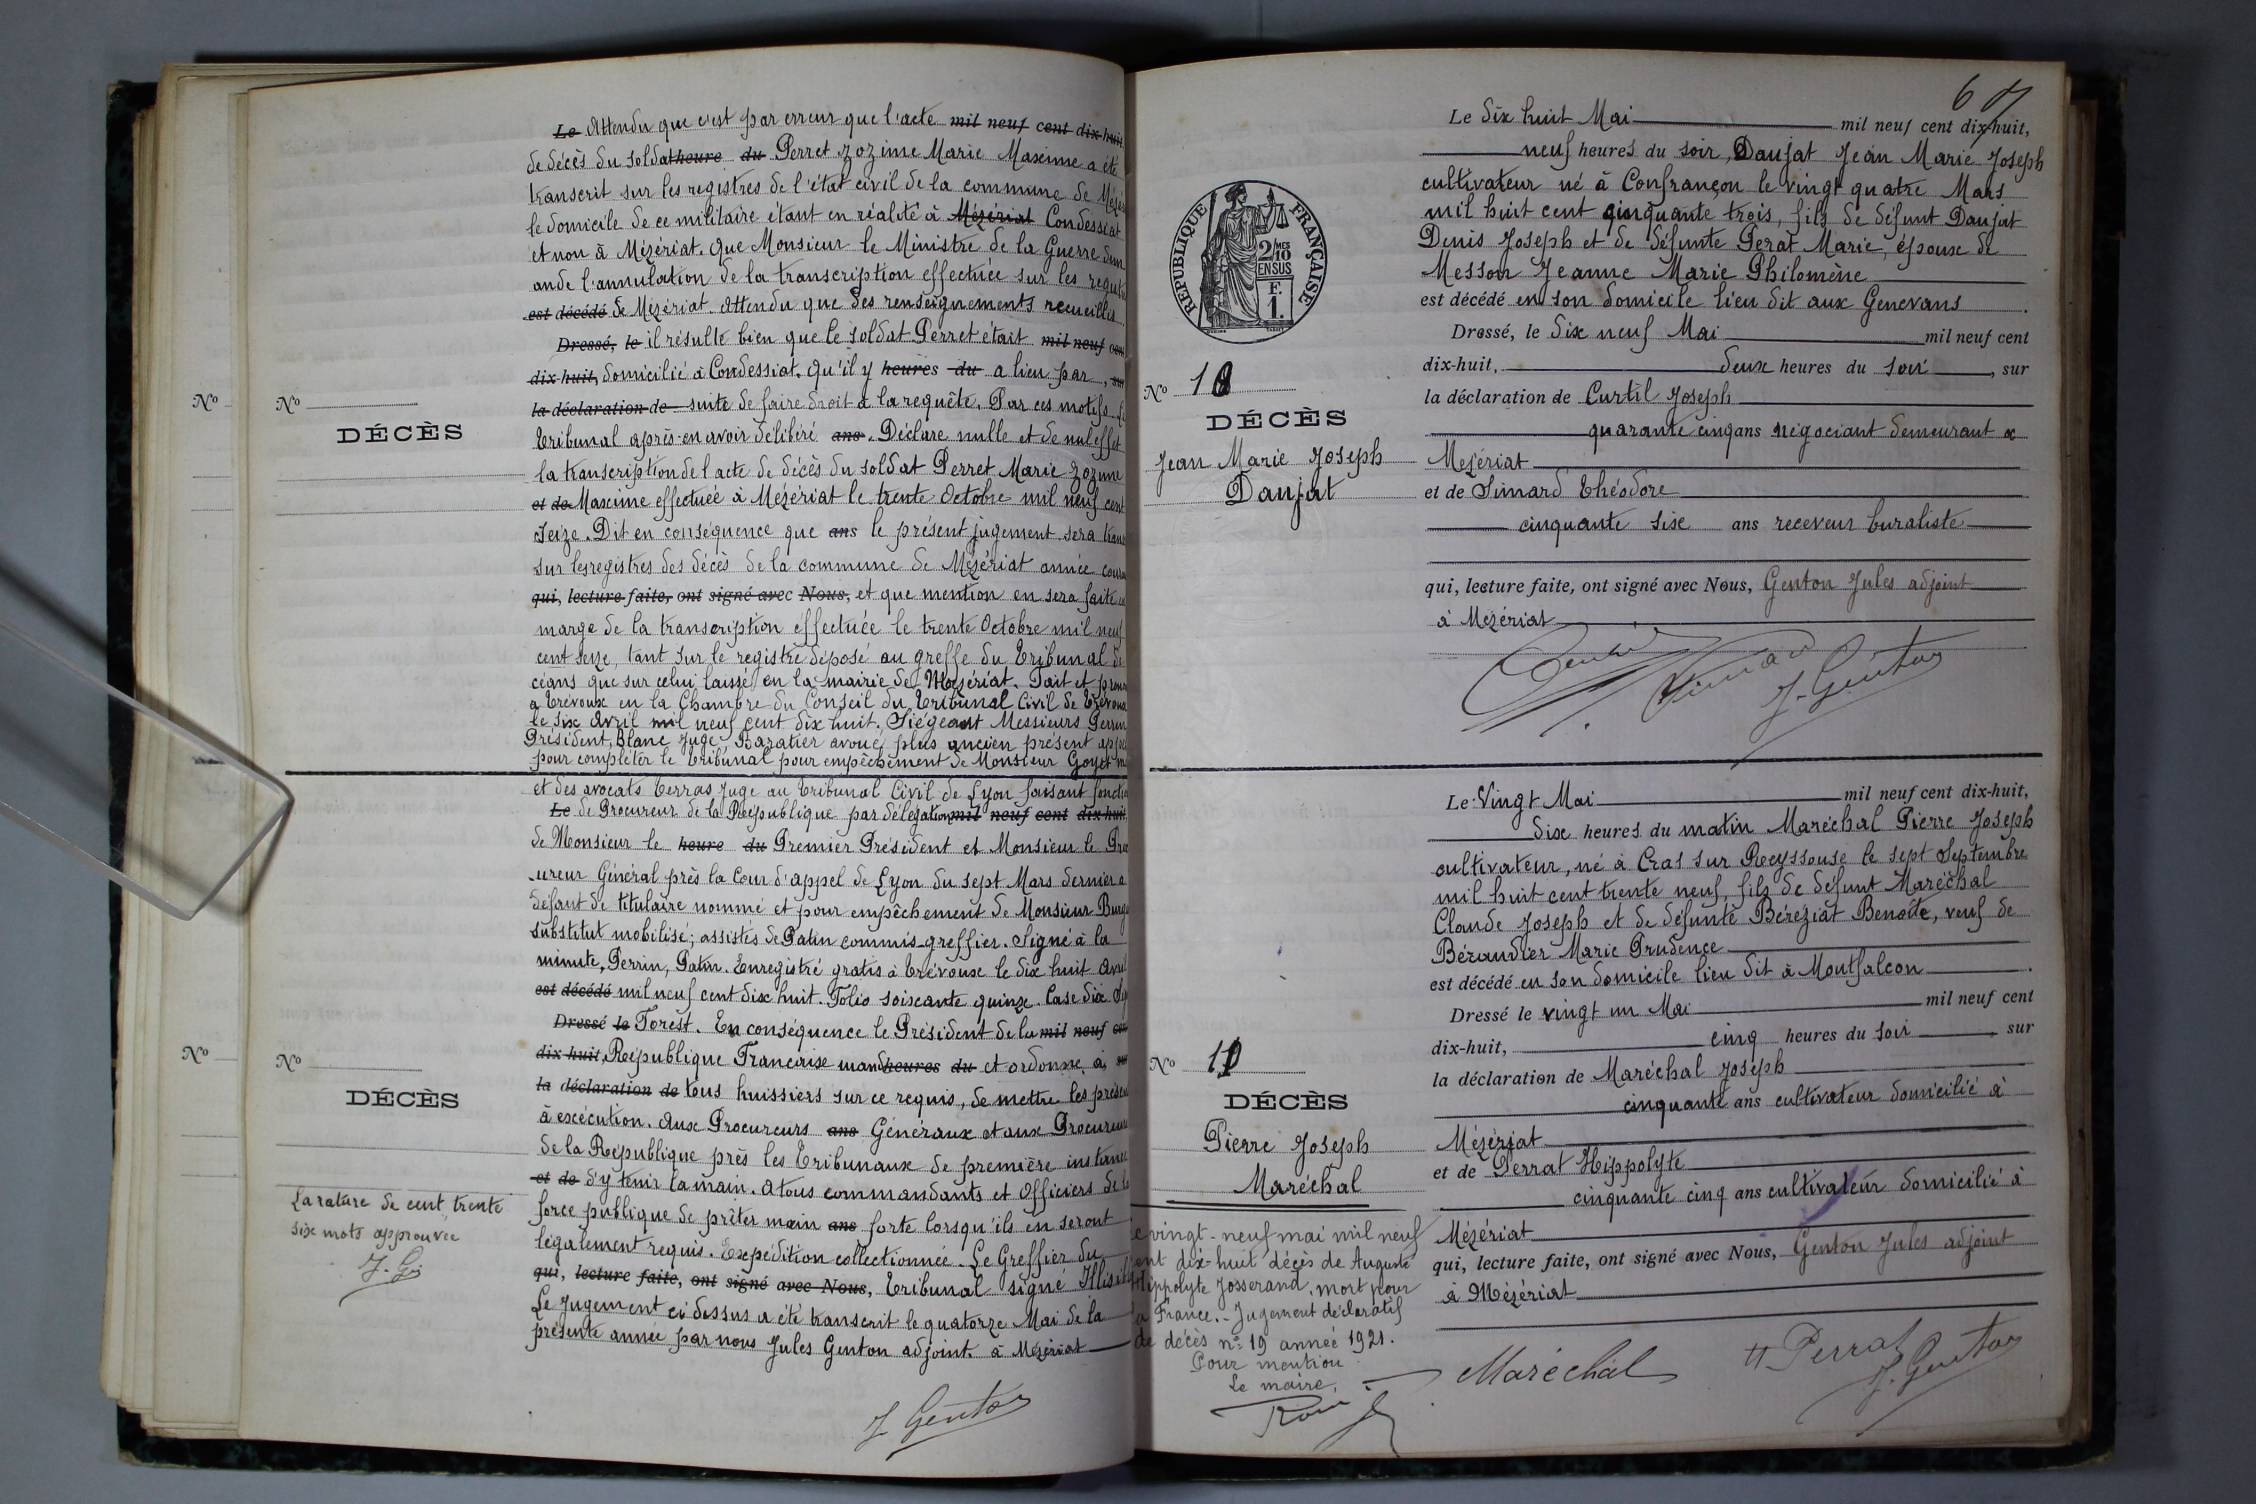 Le Attendu que c'est par erreur que l'acte mil neuf cent dix-huit,
de décès du soldat heure du Perret Zozime Marie Maxime a été
transcrit sur les registres de l'état civil de la commune de Mézé
le domicile de ce militaire étant en réalité à Mézériat Condessiat
et non à Mézériat. Que Monsieur le Ministre de la Guerre dem
ande l'annulation de la transcription effectuée sur les regist
est décédé de Mézériat. Attendu que des renseignements recueillis
Dressé, le il résulte bien que le soldat Perret était mil neuf cent
dix-huit, domicilié à Condessiat. Qu'il y heures du a lieu par , sur
la déclaration de suite de faire droit à la requête. Par ces motifs. Le
Tribunal après en avoir délibéré ans. Déclare nulle et de nul effet
la transcription de l'acte de décès du soldat Perret Marie Zozime
et de Maxime effectuée à Mézériat le trente Octobre mil neuf cent
seize. Dit en conséquence que ans le présent jugement sera trans
sur les registres des décès de la commune de Mézériat année coura
qui, lecture faite, ont signé avec Nous, et que mention en sera faite en
marge de la transcription effectuée le trente Octobre mil neuf
cent seize, tant sur le registre déposé au greffe du Tribunal de
céans que sur celui laissé en la mairie de Mézériat. Fait et pronon
à Trévoux en la Chambre du Conseil du Tribunal Civil de Trévoux
le six Avril mil neuf cent dix huit. Siégeant Messieurs Perrin
Président, Blanc Juge, Bazatier avoué plus ancien présent appe
pour compléter le Tribunal pour empêchement de Monsieur Goyet
et des avocats Terras Juge au Tribunal Civil de Lyon faisant foncti
Le de Procureur de la République par délégation mil neuf cent dix-huit
de Monsieur le heure du Premier Président et Monsieur le Proc
ureur Général près la Cour d'appel de Lyon du sept Mars dernier a
défaut de titulaire nommé et pour empêchement de Monsieur Burg
substitut mobilisé; assistés de Patin commis-greffier. Signé à la
minute, Perrin, Patin. Enregistré gratis à Trévoux le dix huit Avril
est décédé mil neuf cent dix huit. Folio soixante quinze. Case dix Sig
Dressé le Forest. En conséquence le Président de la mil neuf cent
dix-huit, République Française mand heures du et ordonne, à, sur
la déclaration de tous huissiers sur ce requis, de mettre les présen
à excécution. Aux Procureurs ans Généraux et aux Procureurs
de la République près les Tribunaux de première instance
et de d'y tenir la main. A tous commandants et Officiers de la
force publique de prêter main ans forte lorsqu'ils en seront
légalement requis. Expédition collectionnée. Le Greffier du
qui, lecture faite, ont signé avec Nous, Tribunal signé
Le Jugement ci dessus a été transcrit le quatorze Mai de la
présente année par nous Jules Genton adjoint à Mézériat
J Genton
Nº
Nº
DÉCÈS
Nº
Nº
DÉCÈS
La rature de cent trente
six mots approuvée
J. G.
67
RÉPUBLIQUE FRANÇAISE
2/10 MES
EN SUS
F.
1.
Nº 10
DÉCÈS
Jean Marie Joseph
Daujat
Le dix huit Mai mil neuf cent dix-huit,
neuf heures du soir, Daujat Jean Marie Joseph
cultivateur né à Confrançon le vingt quatre Mars
mil huit cent cinquante trois, fils de défunt Daujat
Denis Joseph et de défunte Perat Marie, époux de
Messon Jeanne Marie Philomène
est décédé en son domicile lieu dit aux Genevans.
Dressé, le dix neuf Mai mil neuf cent
dix-huit, deux heures du soir, sur
la déclaration de Curtil Joseph
quarante cinq ans négociant demeurant à
Mézériat
et de Simard Théodore
cinquante six ans receveur buraliste
qui, lecture faite, ont signé avec Nous, Genton Jules adjoint
à Mézériat
Curtil Simard J. Genton
Nº 11
DÉCÈS
Pierre Joseph
Maréchal
Le Vingt Mai mil neuf cent dix-huit,
dix heures du matin Maréchal Pierre Joseph
cultivateur, né à Cras sur Reyssouse le sept Septembre
mil huit cent trente neuf, fils de défunt Maréchal
Claude Joseph et de défunte Béreziat Benoîte, veuf de
Béraudier Marie Prudence
est décédé en son domicile lieu dit à Montfalcon.
Dressé le vingt un Mai mil neuf cent
dix-huit, cinq heures du soir, sur
la déclaration de Maréchal Joseph
cinquante ans cultivateur domicilié à
Mézériat
et de Perrat Hippolyte
cinquante cinq ans cultivateur domicilié à
Mézériat
qui, lecture faite, ont signé avec Nous, Genton Jules adjoint
à Mézériat
Maréchal H Perrat J. Genton
Le vingt-neuf mai mil neuf
cent dix-huit décès de Auguste
Hippolyte Josserand, mort pour
la France.- Jugement déclaratif
de décès nº 19 année 1921.
Pour mention
Le maire,